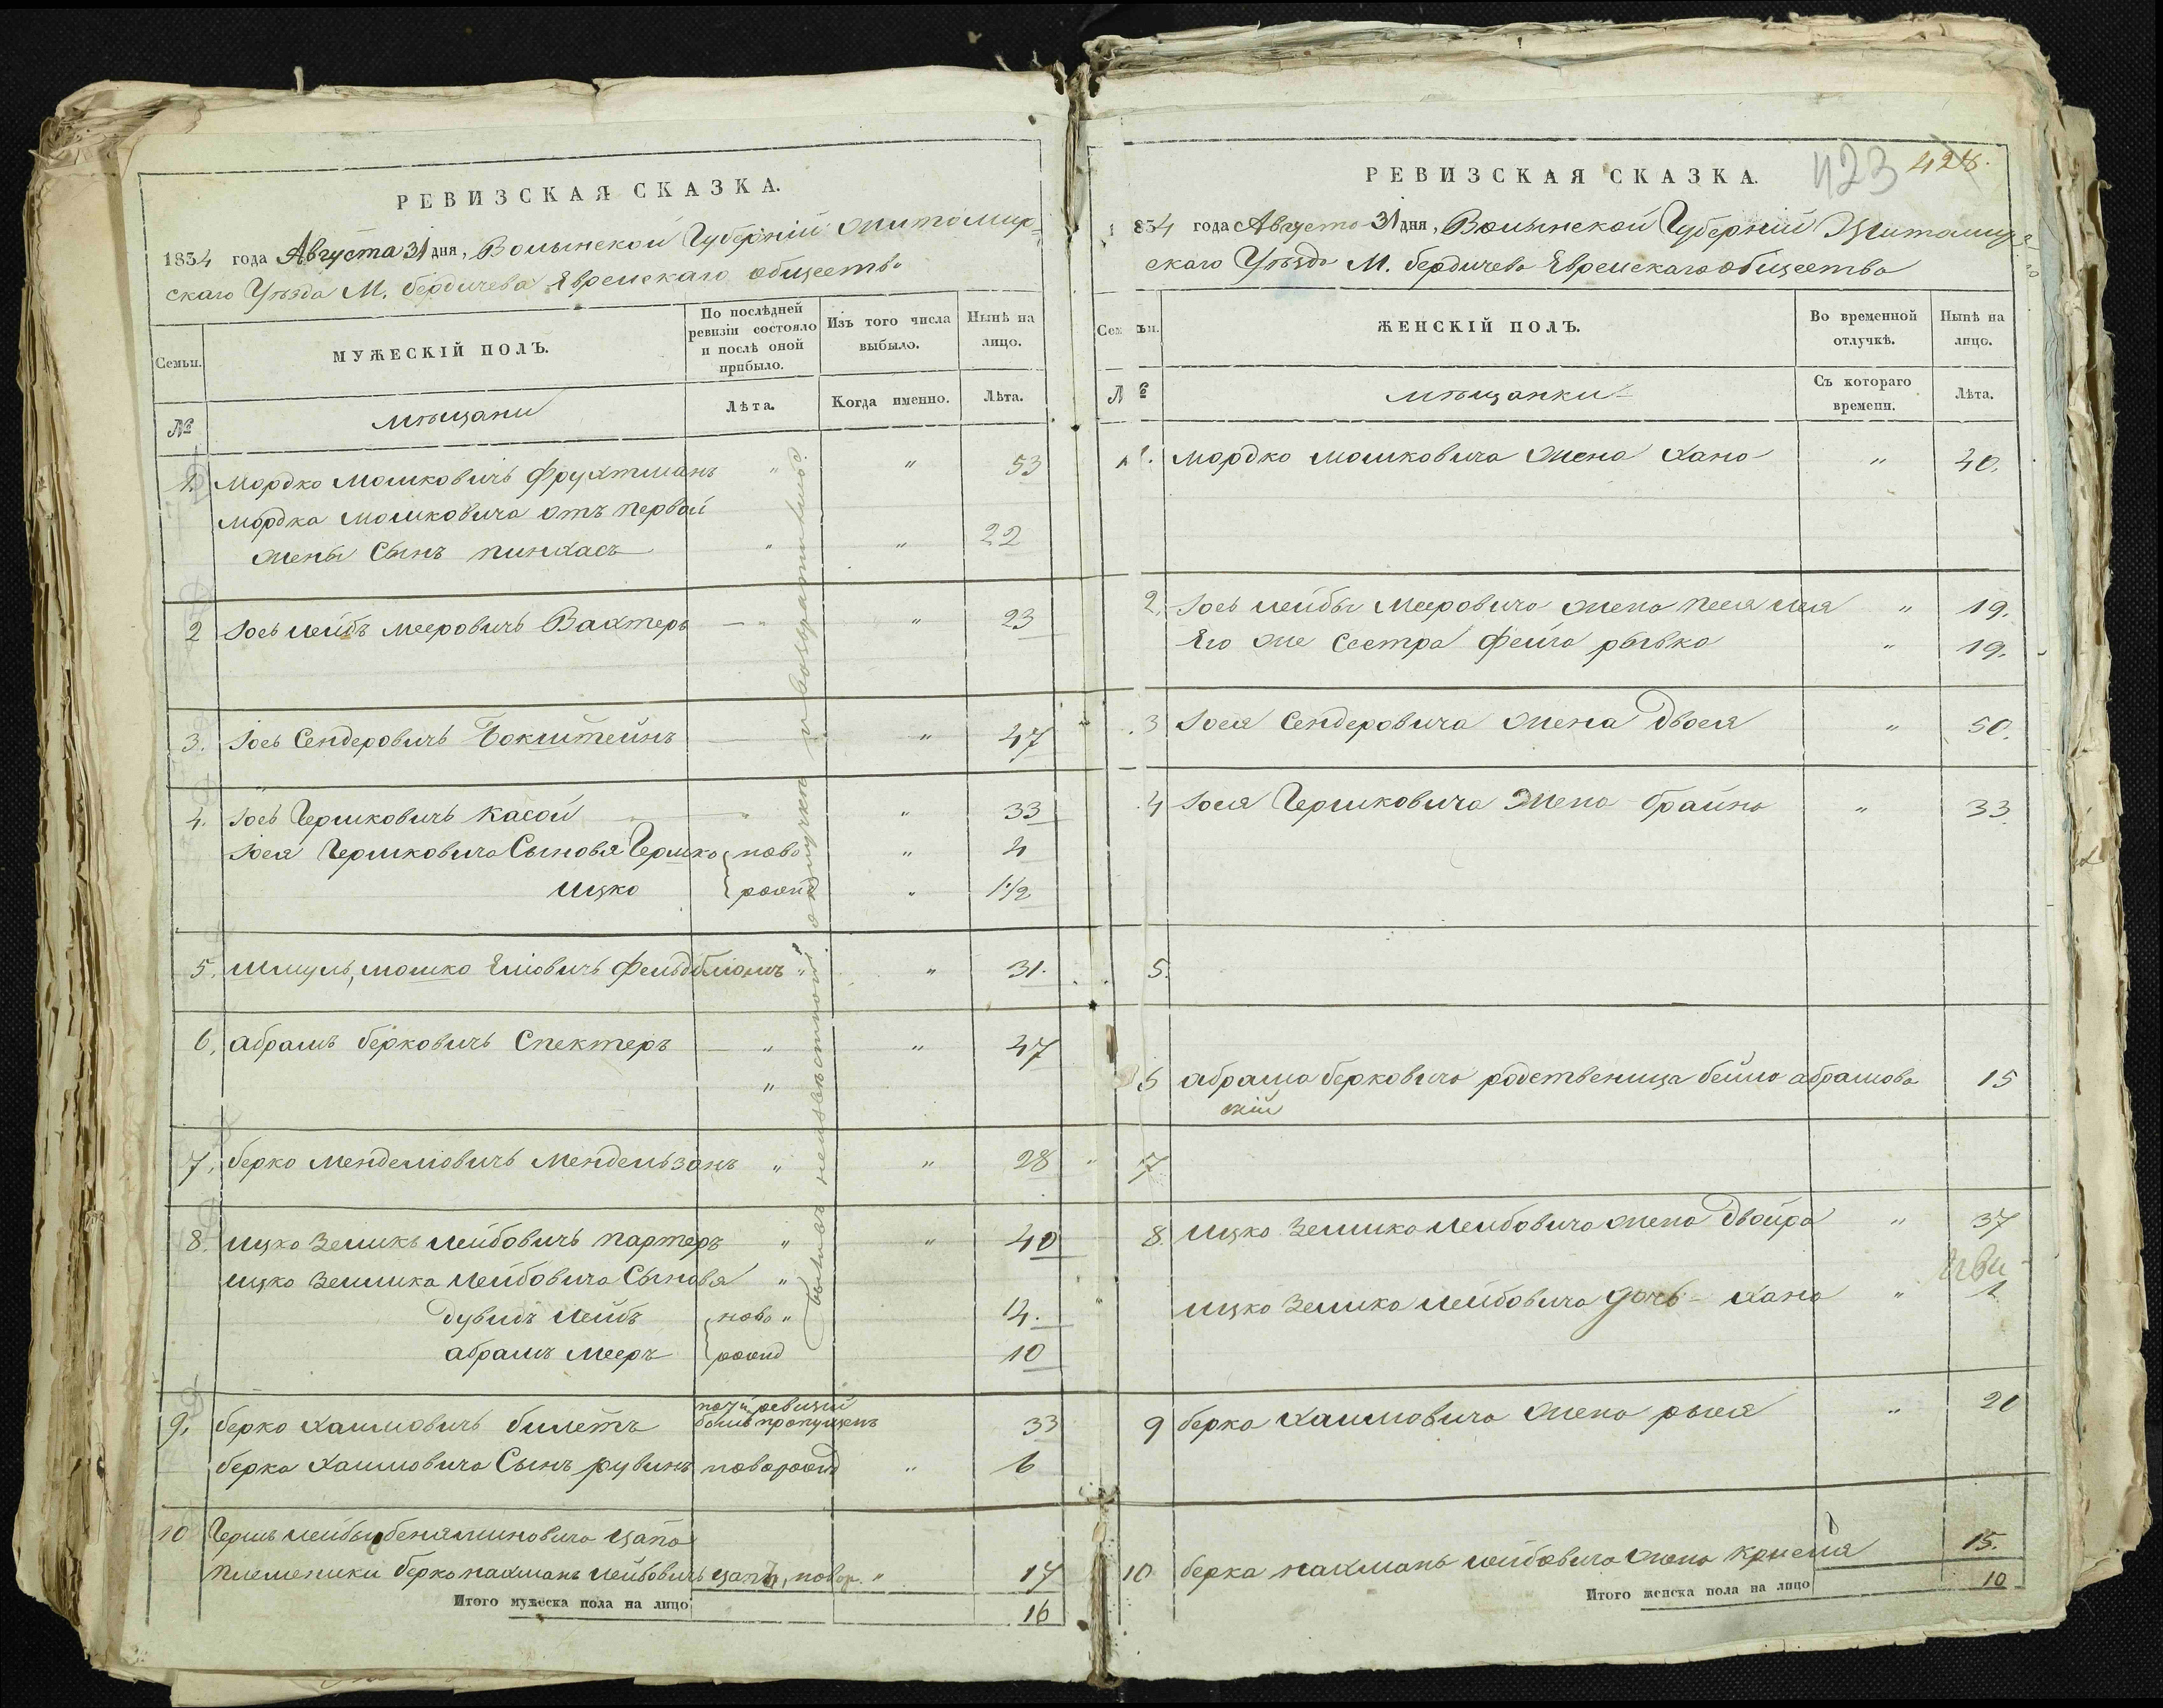 РЕВИЗСКАЯ СКАЗКА.
1834 года Августа 31 дня, Волынской Губерніи Житомир-
скаго Уѣзда М. бердичева Еврейскаго общества
Семьи.
МУЖЕСКІЙ ПОЛЪ.
По послѣдней ревизіи состояло и послѣ оной прибыло.
Изъ того числа выбыло.
Нынѣ на лицо.
№
мѣщани
Лѣта.
Когда именно.
Лѣта.
1. Мордко Мошковичъ Фрухтманъ " " 53
Мордка Мошковича отъ первой
жены Сынъ пинхасъ " " 22
2 Іось лейбъ мееровичъ Вахтеръ " " 23
3. Іось Сендеровичъ Бокштейнъ " 47
4. Іось Гершковичъ Касой " " 33
Іося Гершковича Сыновя Гершко ново " 4
ицко рожд " 1 1/2
5. Шмуль, мошко Еліовичъ Фельдблюмъ " " 31.
6. абрамъ берковичъ Спекторъ " " 47
"
7. берко менделіовичъ мендельзонъ " " 28
8. ицко Зеликъ лейбовичъ партеръ " " 40
ицко Зелика лейбовича Сыновя "
дувидъ лейбъ ново " 14.
абрамъ мееръ рожд 10
9. берко хаимовичъ билетъ
по 7й ревизіи
былъ пропущенъ 33
берка Хаимовича Сынъ рувинъ новорожд " 6
10 Гершъ лейбы беняминовича цапа
племеники берко нахманъ лейбовичъ цапъ, новор. " 17
Итого мужеска пола на лицо 16
были въ неизвѣстной отлучкѣ и возвратились.
РЕВИЗСКАЯ СКАЗКА.
423 428.
1834 года Августа 31 дня, Волынской Губерніи Житомир-
скаго Уѣзда М. бердичева Еврейскаго общества
Семьи.
ЖЕНСКІЙ ПОЛЪ.
Во временной отлучкѣ.
Нынѣ на лицо.
№
мѣщанки
Съ котораго времени.
Лѣта.
1. мордко мошковича жена хана " 40.
2. Іось лейбы мееровича жена песя лея " 19.
Его же Сестра фейга рывка " 19.
3 Іося Сендеровича жена Двося " 50.
4 Іося Гершковича жена брайна " 33
5.
6 абрама берковича родственица бейла абрамова 15
7
8. ицко Зелика лейбовича жена Двойра " 37
ицко Зелика лейбовича дочь хана " 1
9 берка хаимовича жена рыся " 20
10 берка нахманъ лейбовича жена крыся 15.
Итого женска пола на лицо 10